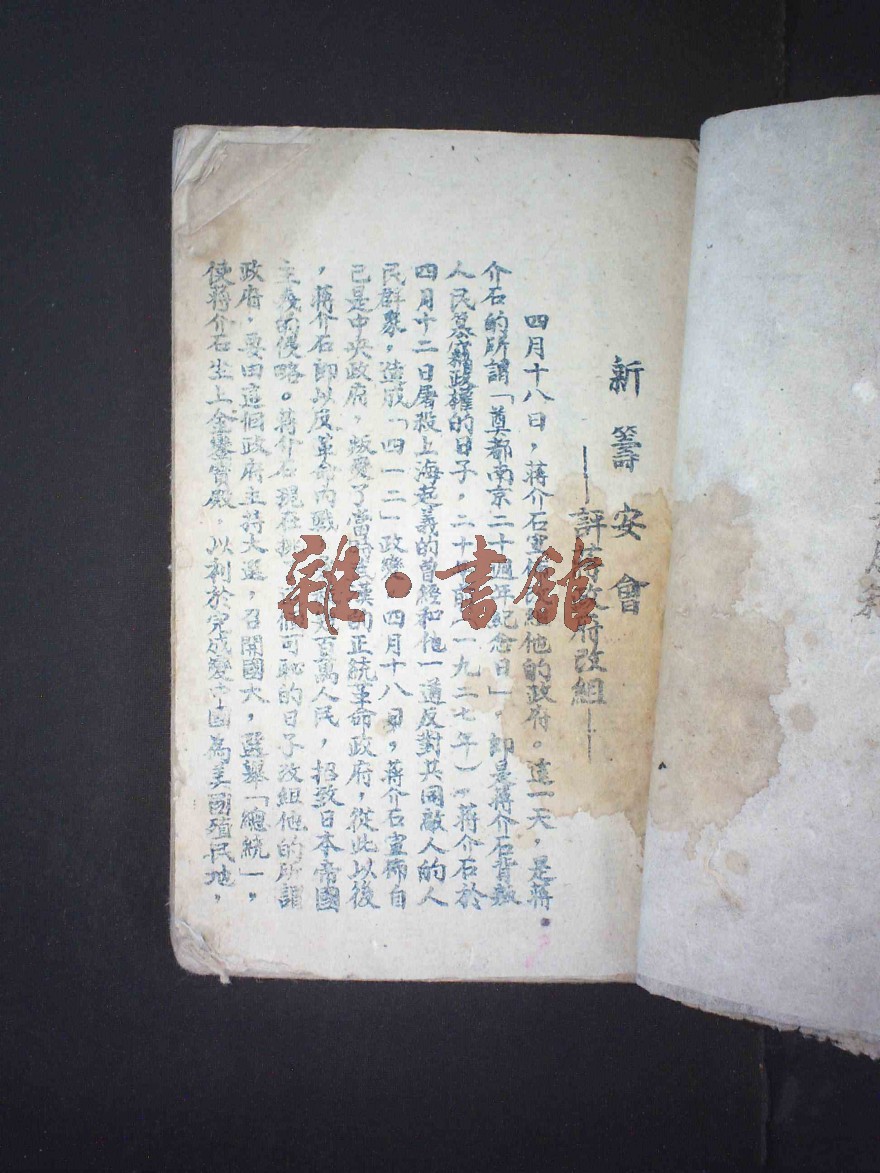 新籌安會
——評蔣政府改組——
四月十八日，蔣介石宣佈改組他的政府。這一天，是蔣
介石的所謂「奠都南京二十週年紀念日」。即是蔣介石背叛
人民篡奪政權的日子，二十年前（一九二七年），蔣介石於
四月十二日屠殺上海起義的曾經和他一道反對共同敵人的人
民群衆，造成「四一二」政變，四月十八日，蔣介石宣佈自
己是中央政府，叛變了當時武漢的正統革命政府，從此以後
，蔣介石即以反革命內戰 百萬人民，招致日本帝國
主義的侵略。蔣介石現在 個可恥的日子改組他的所謂
政府，要由這個政府主持大選，召開國大，選舉「總統」，
使蔣介石坐上金鑾寶殿，以利於完成變中國為美國殖民地，
雜·書館